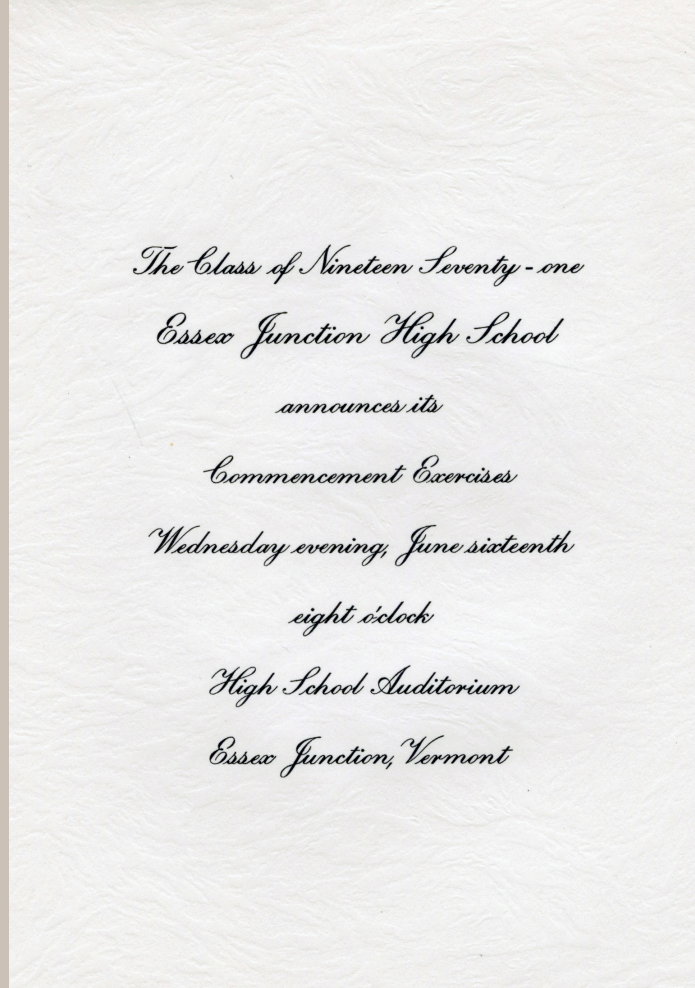 The Class of Nineteen Seventy-one
Essex Junction High School
announces its
Commencement Exercises
Wednesday evening, June sixteenth
eight o'clock
High School Auditorium
Essex Junction, Vermont